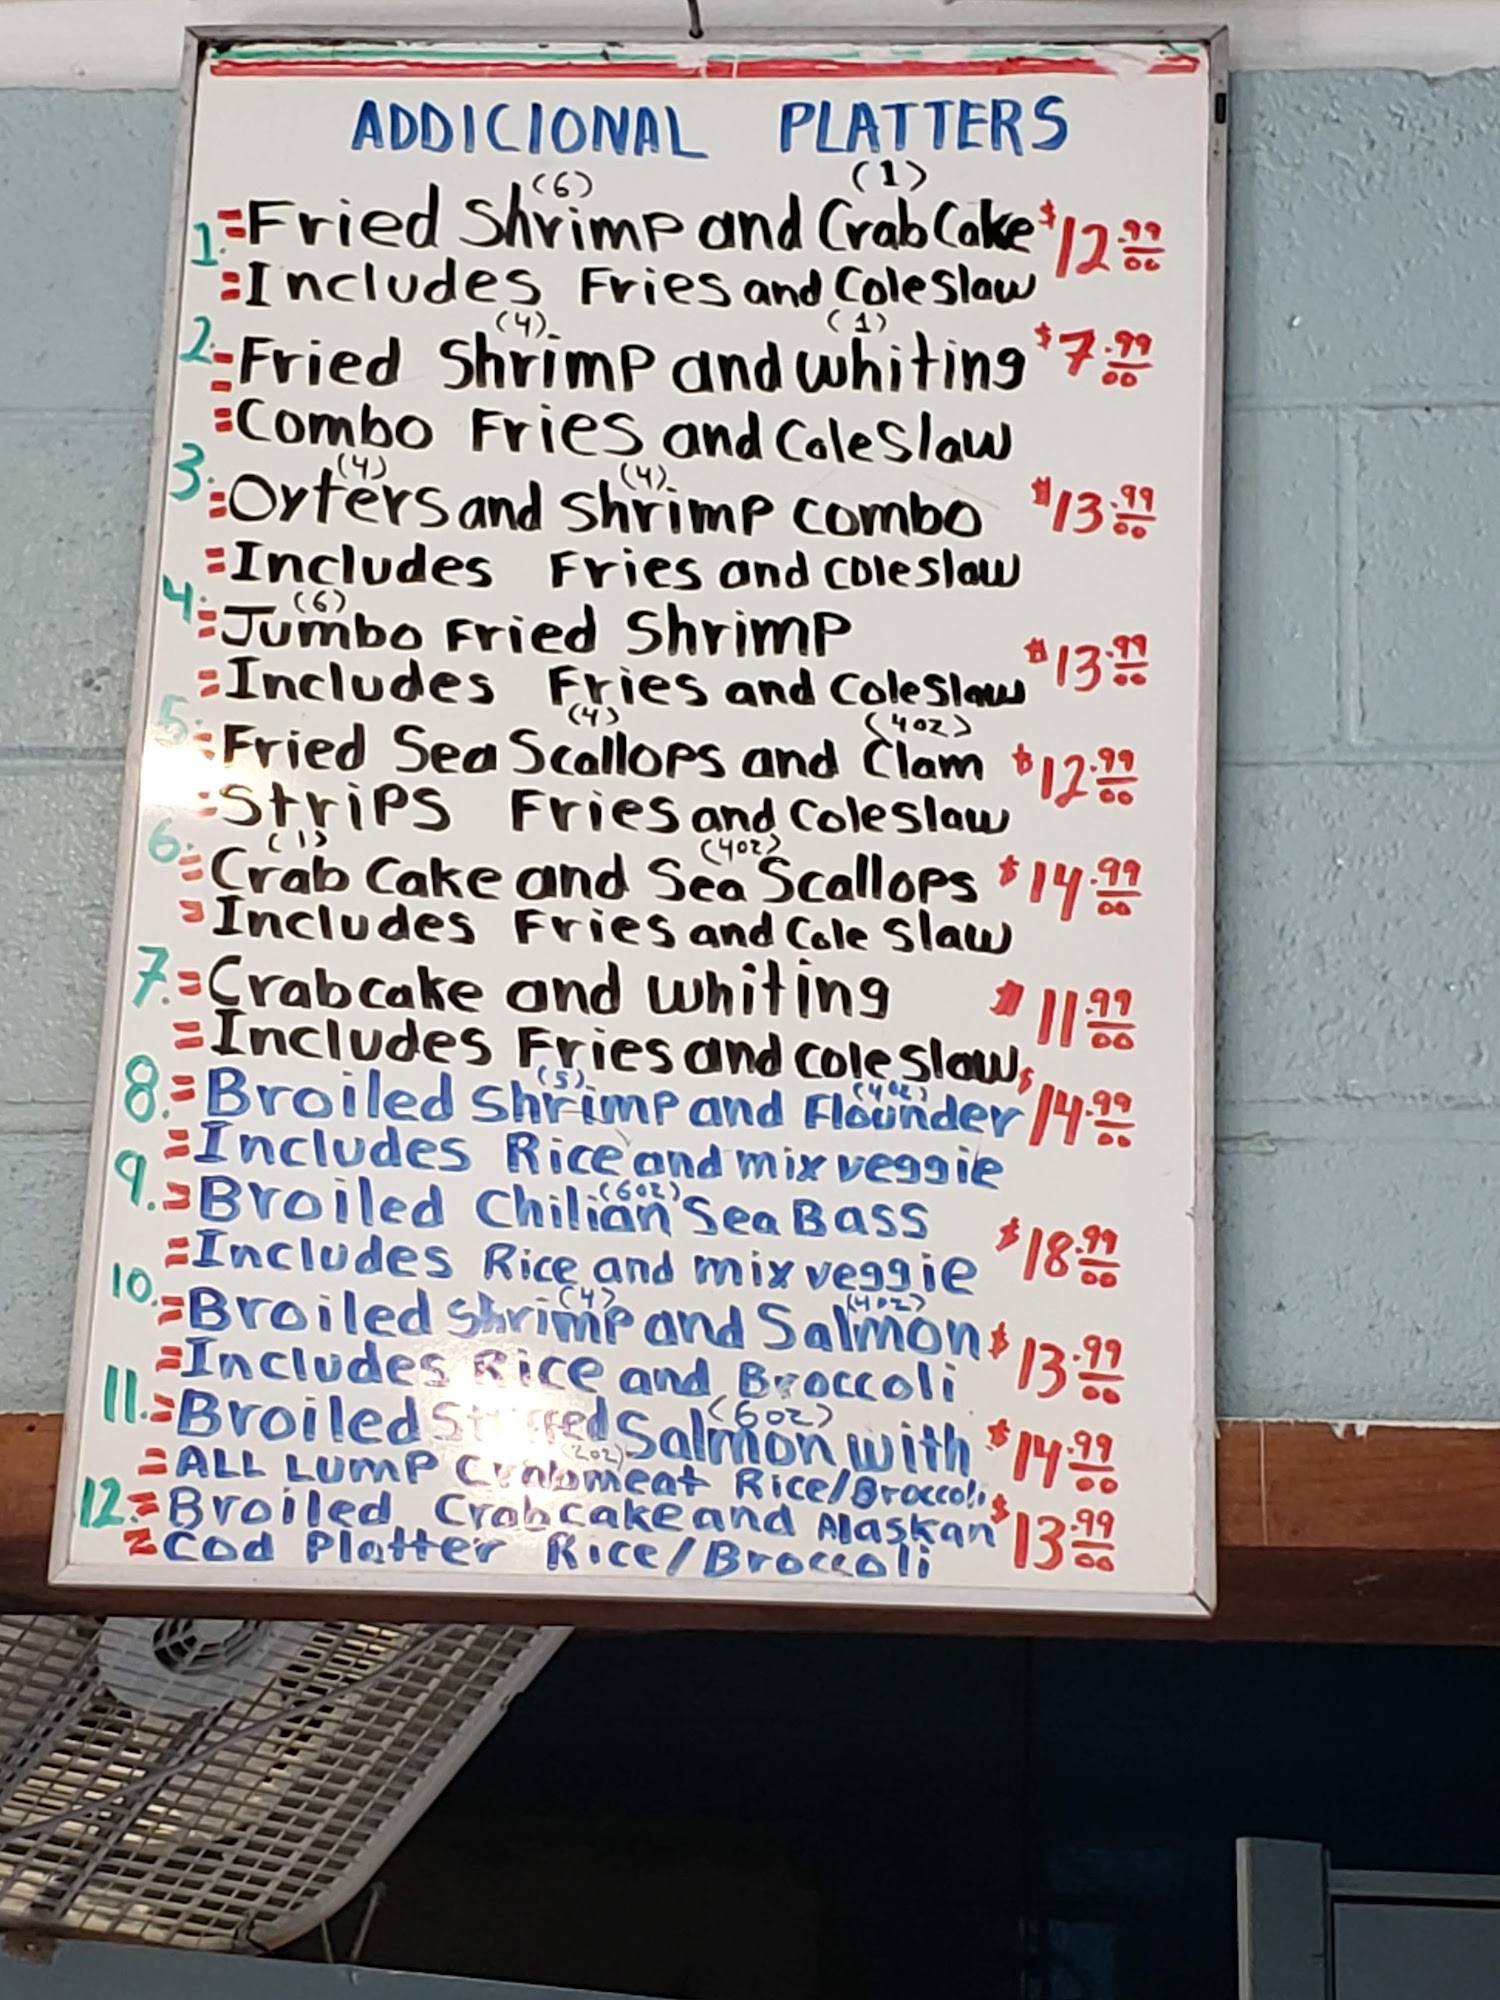 ADDICIONAL PLATTERS
(6) (1)
1.=Fried Shrimp and Crab Cake $12.99/00
=Includes Fries and Coleslaw
(4) (1)
2.=Fried Shrimp and whiting $7.99/00
=Combo Fries and Coleslaw
(4) (4)
3.=Oyters and Shrimp combo $13.99/00
=Includes Fries and coleslaw
(6)
4.=Jumbo Fried Shrimp $13.99/00
=Includes Fries and Coleslaw
(4) (4oz)
5.=Fried Sea Scallops and Clam $12.99/00
=Strips Fries and Coleslaw
(1) (4oz)
6.=Crab Cake and Sea Scallops $14.99/00
=Includes Fries and Cole Slaw
7.=Crabcake and whiting $11.99/00
=Includes Fries and coleslaw
(5) (4oz)
8.=Broiled Shrimp and Flounder $14.99/00
=Includes Rice and mix veggie
(6oz)
9.=Broiled Chilian Sea Bass $18.99/00
=Includes Rice and mix veggie
(4) (4oz)
10.=Broiled Shrimp and Salmon $13.99/00
=Includes Rice and Broccoli
(6oz)
11.=Broiled Stuffed Salmon with $14.99/00
(2oz)
=ALL LUMP Crabmeat Rice/Broccoli
12.=Broiled Crabcake and Alaskan $13.99/00
=Cod Platter Rice/Broccoli